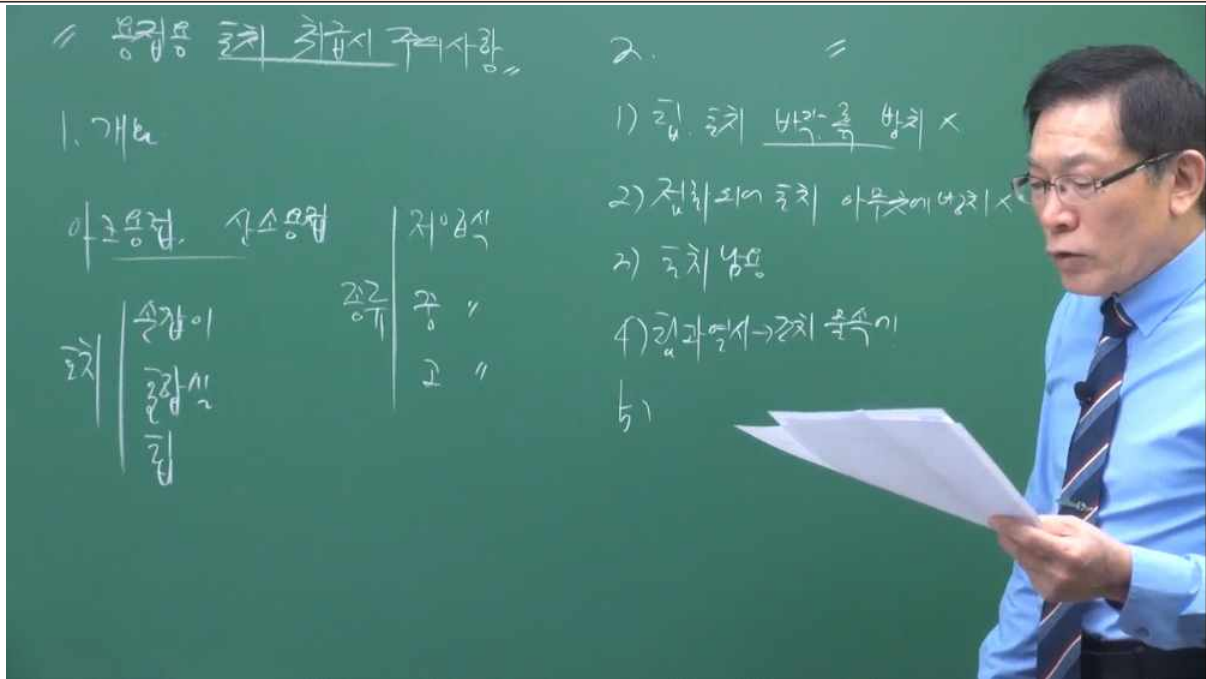 〃 용접용 토치 취급시 주의사항 〃
1. 개요
아크용접. 산소용접
토치
손잡이
혼합실
팁
종류
저압식
중 〃
고 〃
2. 〃
1) 팁. 토치 바닥-흙 방치 X
2) 점화되어 토치 아무곳에 방치 X
3) 토치 남용
4) 팁과열시→토치 물속에
5)